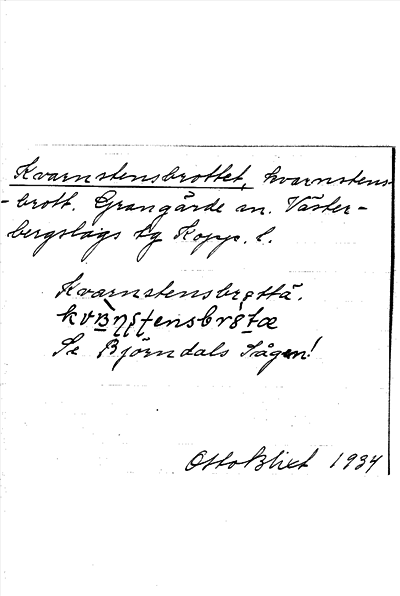 Kvarnstensbrottet, kvarnstens-
-brott. Grangärde sn. Väster-
bergslags tg Kopp. l.
Kvarnstensbrøttä.
Se Björndals Sågen!
Otto Blixt 1934